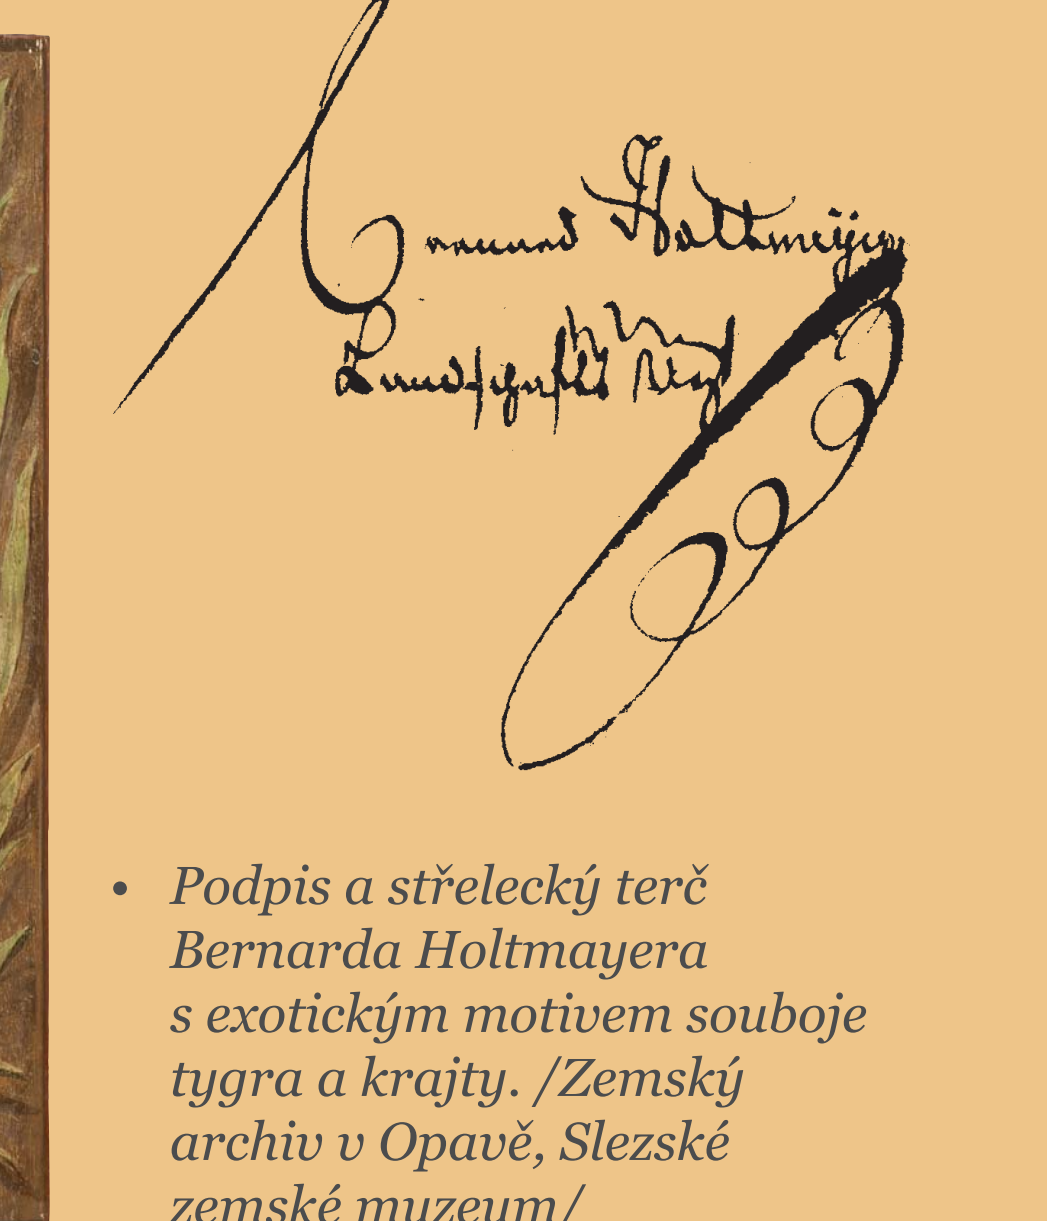 Bernard Holtmeÿer
Landschafts
• Podpis a střelecký terč
Bernarda Holtmayera
s exotickým motivem souboje
tygra a krajty. /Zemský
archiv v Opavě, Slezské
zemské muzeum/